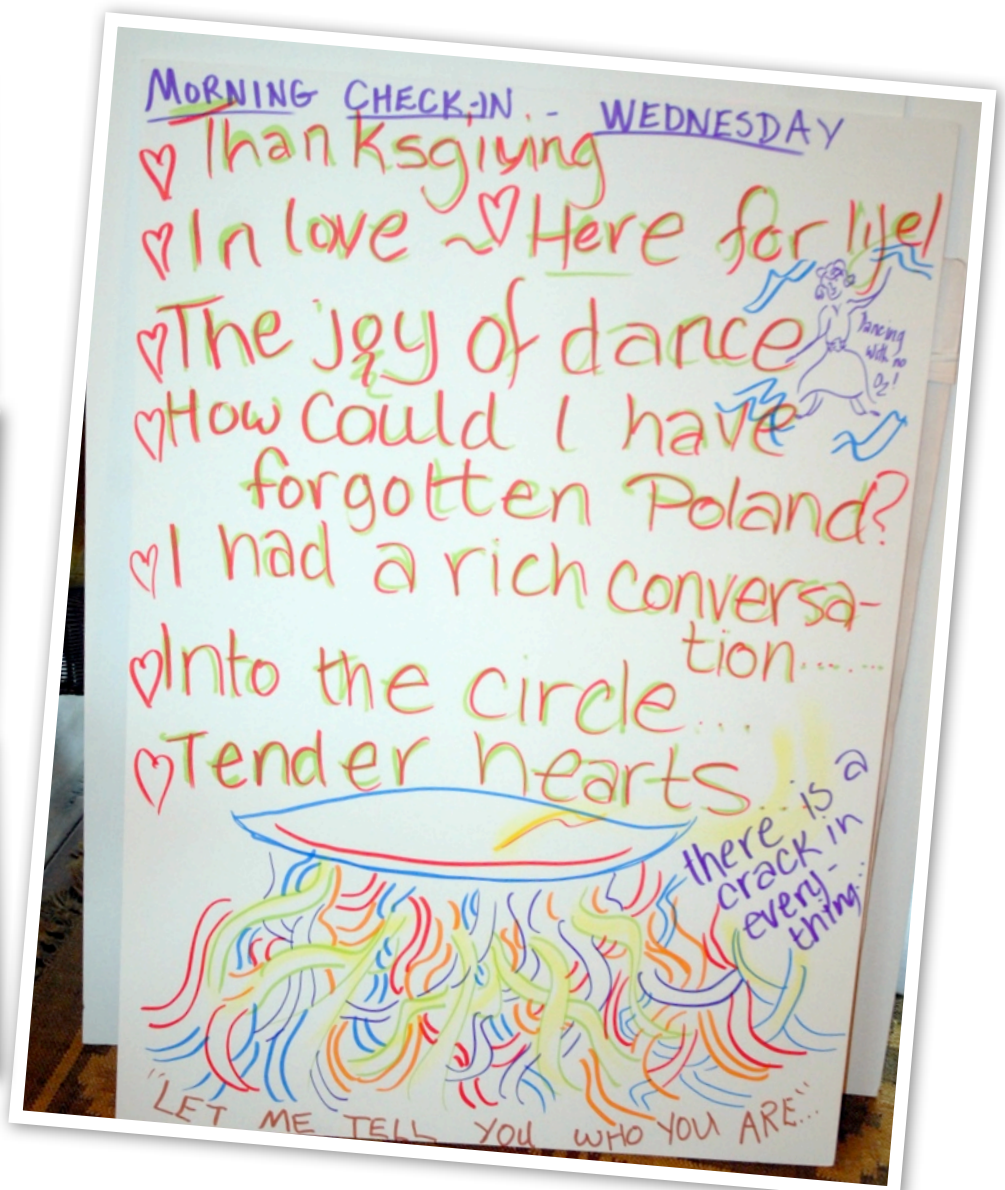 MORNING CHECK-IN - WEDNESDAY
Thanksgiving
In love ~ Here for life!
The joy of dance
Dancing
with no
O2!
How could I have
forgotten Poland?
I had a rich conversa-
tion.......
Into the circle...
Tender hearts...
there is a
crack in
every-
thing...
"LET ME TELL YOU WHO YOU ARE"...